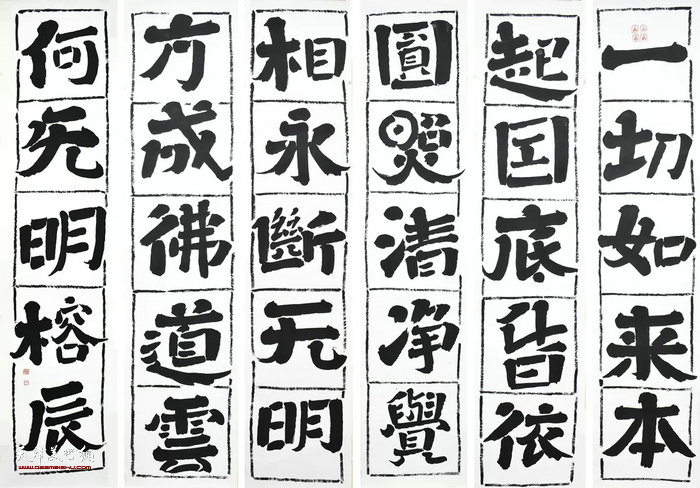 一切如来本
起囙底皆依
圓照清净覺
相永斷无明
方成彿道雲
何无明榕辰